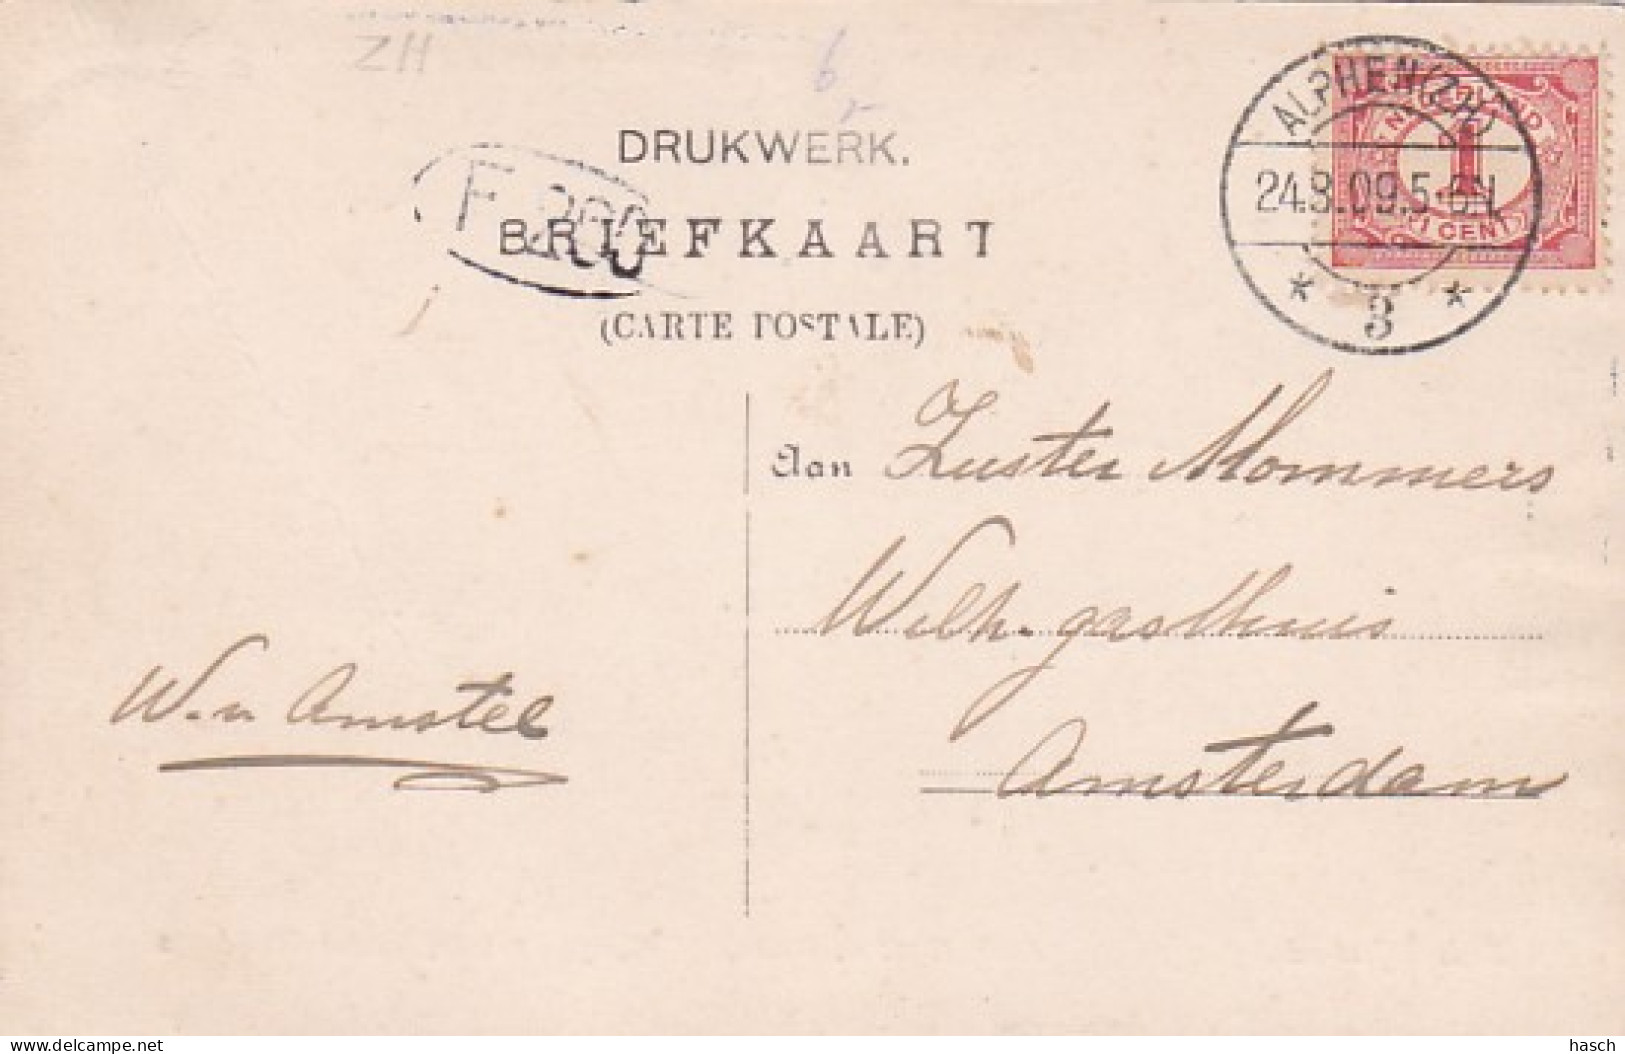 ZH
6
DRUKWERK.
F 280
BRIEFKAART
(CARTE POSTALE)
ALPHEN (ZH)
24.8.09.5-6N
3
NEDERLAND
1
1 CENT
Aan Zuster Mommers
Wilh. gasthuis
Amsterdam
W. v. Amstel
delcampe.net
hasch